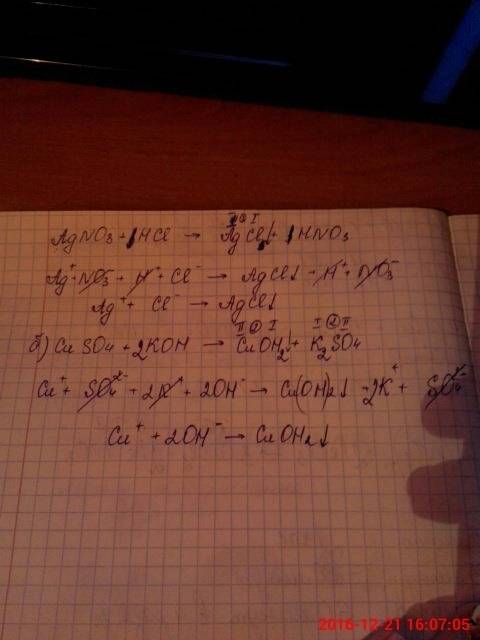 AgNO₃ + 1HCl → AgCl↓ + 1HNO₃
Ag⁺ + NO₃⁻ + H⁺ + Cl⁻ → AgCl↓ + H⁺ + NO₃⁻
Ag⁺ + Cl⁻ → AgCl↓
б) CuSO₄ + 2KOH → CuOH₂↓ + K₂SO₄
Cu⁺ + SO₄²⁻ + 2K⁺ + 2OH⁻ → Cu(OH)₂↓ + 2K⁺ + SO₄²⁻
Cu⁺ + 2OH⁻ → CuOH₂↓
2016-12-21 16:07:05